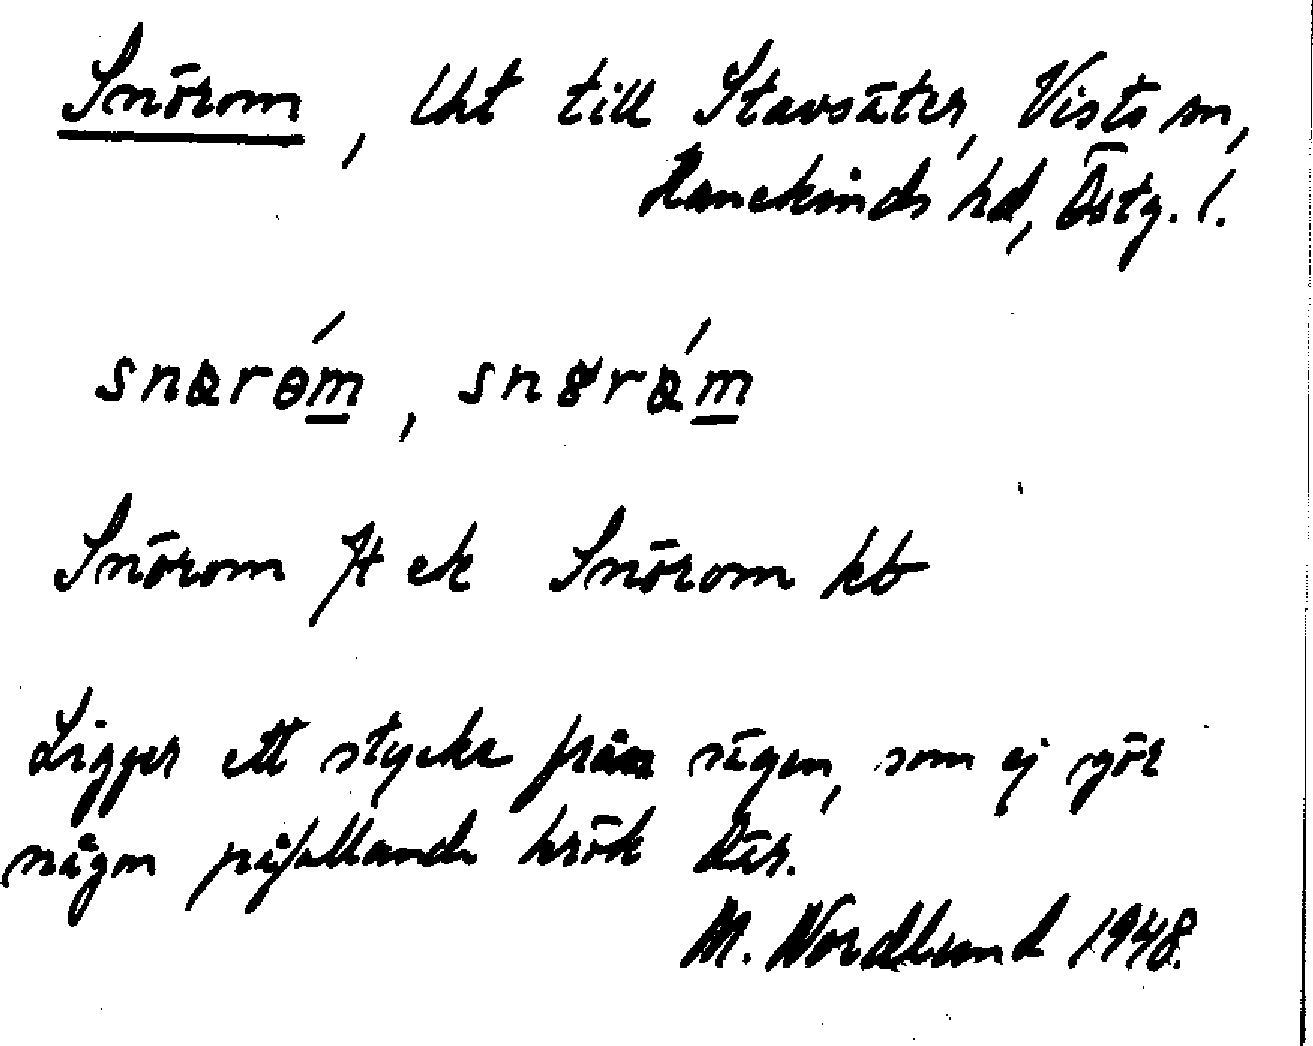 Snörom, Uht till Stavsäter, Vists sn,
Hanekinds hd, Östg. l.
Snörom Jt ek Snörom kb
Ligger ett stycke från vägen, som ej gör
någon påfallande krök där.
M. Nordlund 1948.